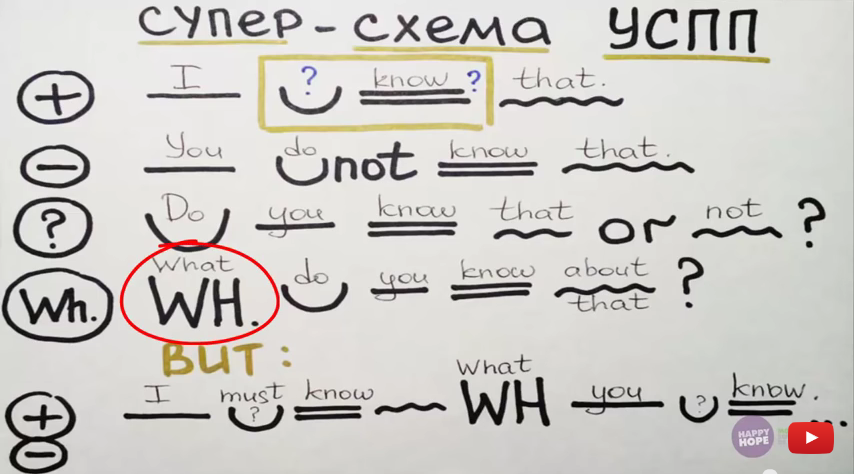 СУПЕР - СХЕМА УСПП
+ I ? know ? that.
− You do not know that.
? Do you know that or not ?
Wh. What WH. do you know about that ?
BUT :
+ − I must ? know What WH you ? know. ...
HAPPY HOPE